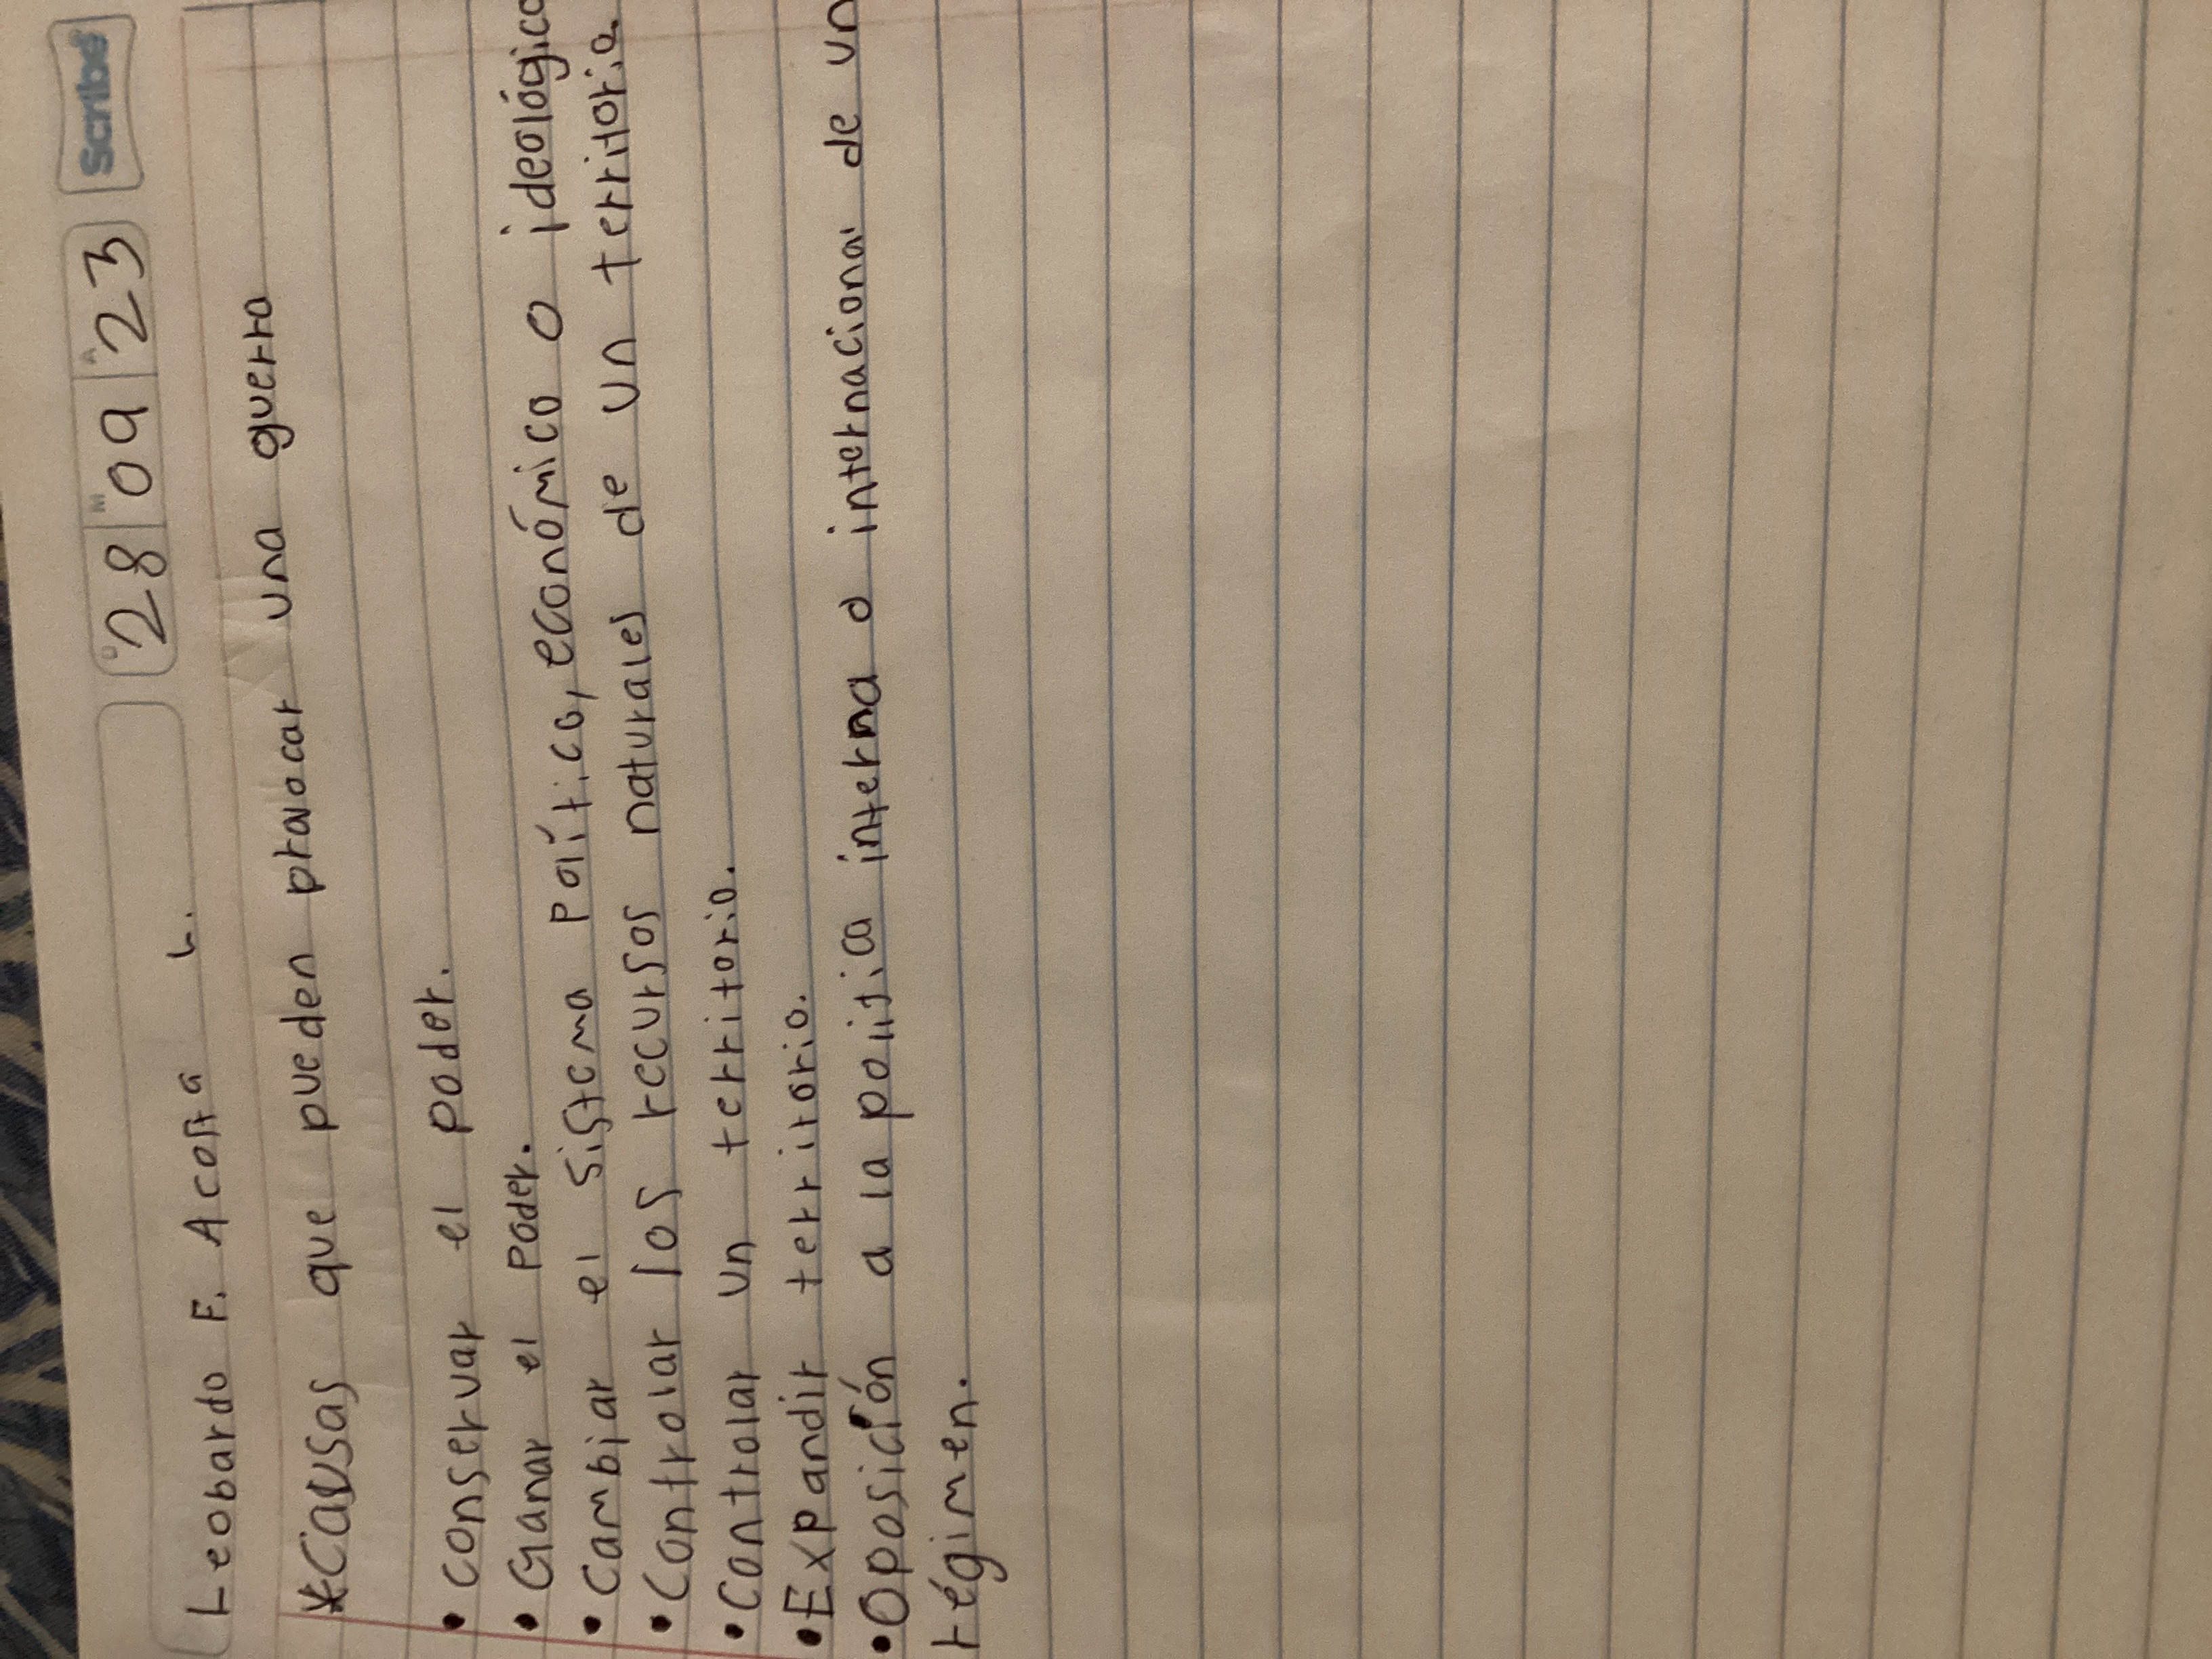 D 28 M 09 A 23 Scribe
Leobardo F. Acosta L.
*Causas que pueden provocar una guerra
• Conservar el poder.
• Ganar el poder.
• Cambiar el sistema político, económico o ideológico
• Controlar los recursos naturales de un territorio
• Controlar un territorio.
• Expandir territorio.
• Oposición a la política interna o internacional de un
régimen.